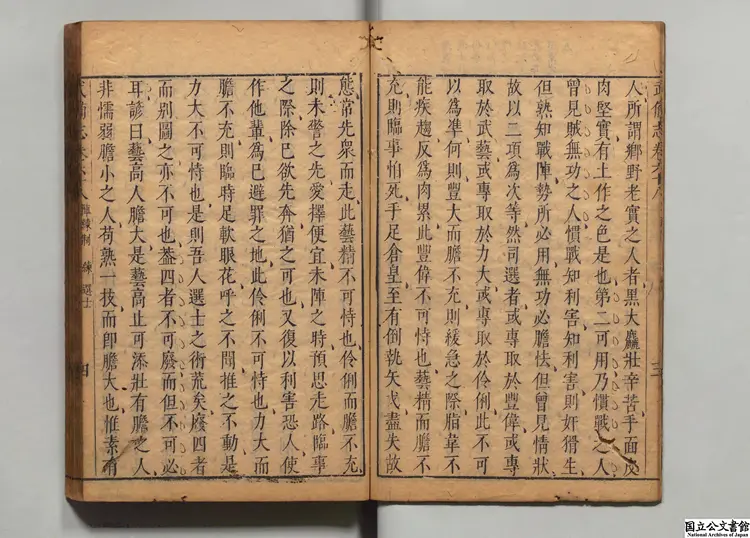 人所謂鄉野老實之人者黑大麤壯辛苦手面皮
肉堅實有土作之色是也第二可用乃慣戰之人
曾見賊無功之人慣戰知利害知利害則奸猾生
但熟知戰陣勢所必用無功必膽怯但曾見情狀
故以二項為次等然司選者或專取於豐偉或專
取於武藝或專取於力大或專取於伶俐此不可
以為準何則豐大而膽不充則緩急之際脂韋不
能疾趨反為肉累此豐偉不可恃也藝精而膽不
充則臨事怕死手足倉皇至有倒執矢戈盡失故
態常先衆而走此藝精不可恃也伶俐而膽不充
則未警之先愛擇便宜未陣之時預思走路臨事
之際除已欲先奔猶之可也又復以利害恐人使
作他輩為已避罪之地此伶俐不可恃也力大而
膽不充則臨時足軟眼花呼之不聞推之不動是
力大不可恃也是則吾人選士之術荒矣廢四者
而别圖之亦不可也葢四者不可廢而但不可必
耳諺曰藝高人膽大是藝高止可添壯有膽之人
非懦弱膽小之人苟熟一技而即膽大也惟素有
武備志卷
三
陣練制 練 選士
四
国立公文書館
National Archives of Japan